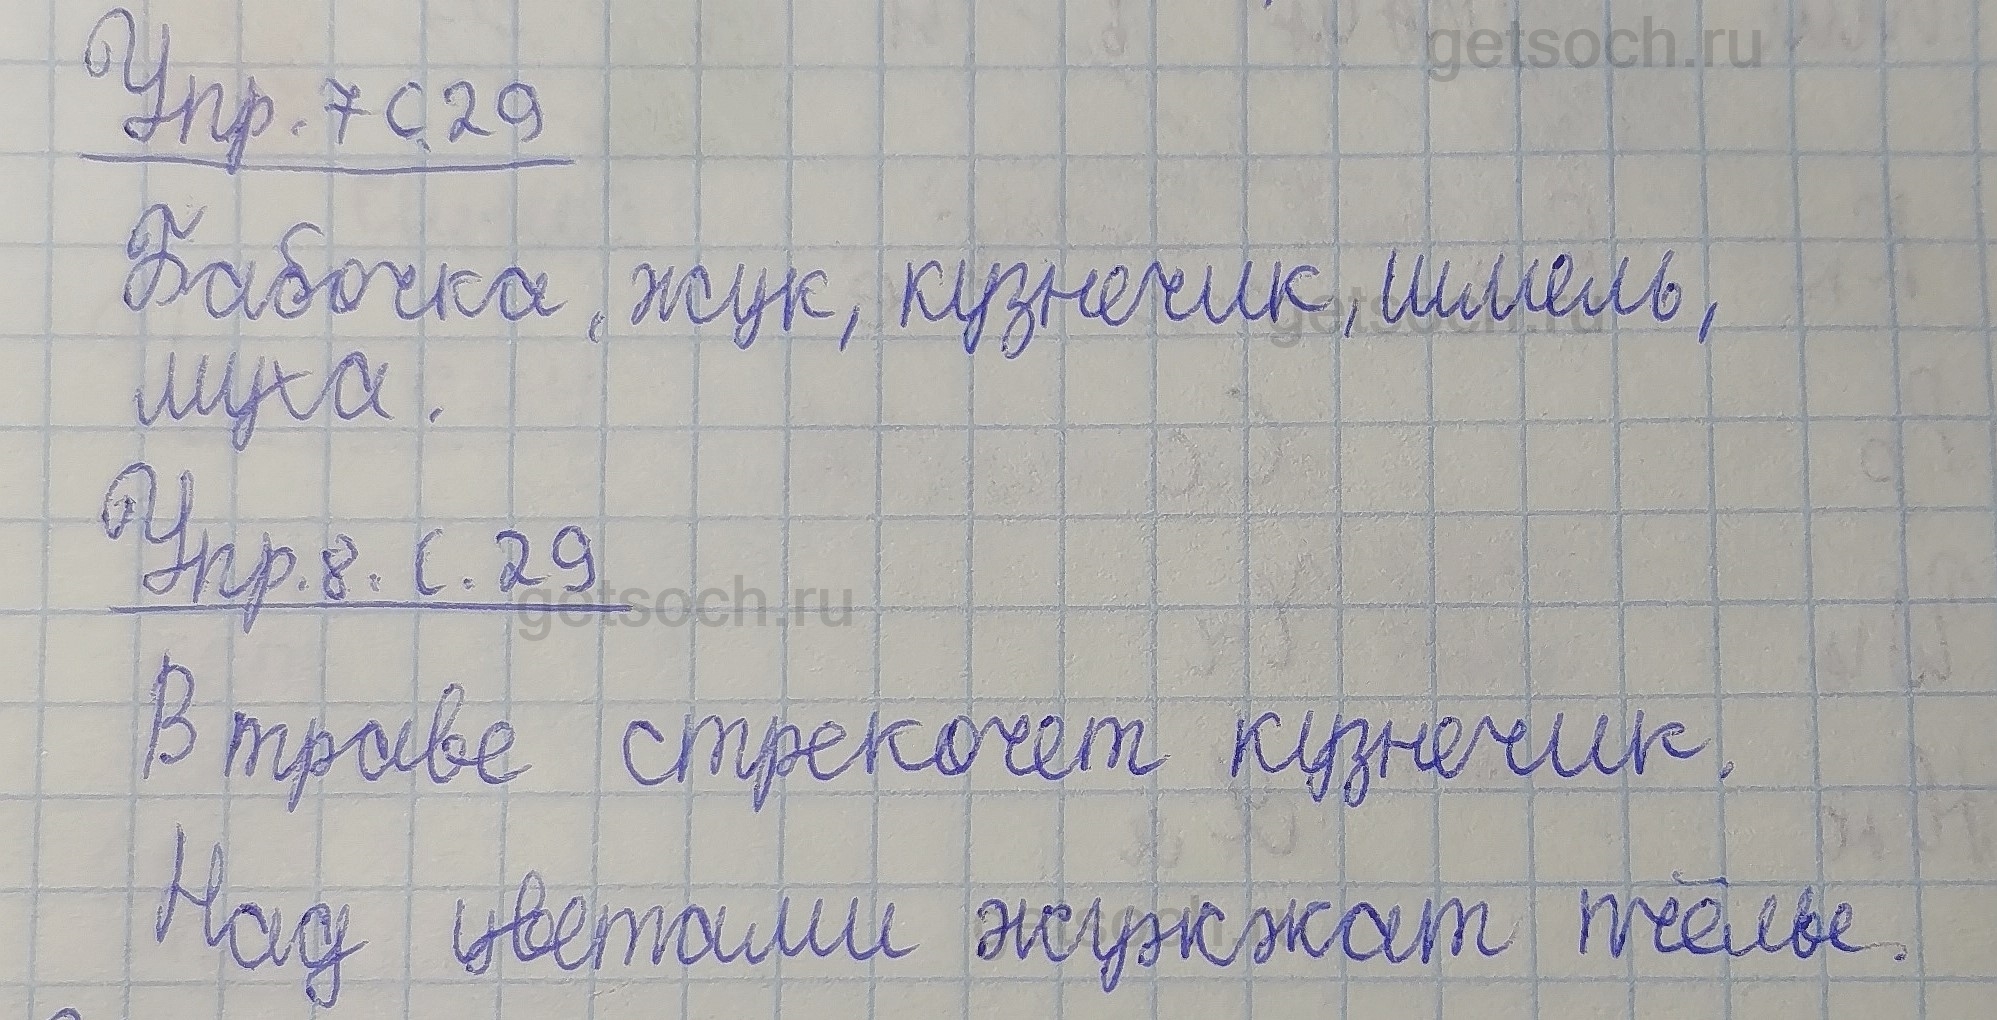 getsoch.ru
Упр. 7 С. 29
Бабочка, жук, кузнечик, шмель,
getsoch.ru
муха.
Упр. 8. С. 29
getsoch.ru
В траве стрекочет кузнечик.
Над цветами жужжат пчёлы.
getsoch.ru